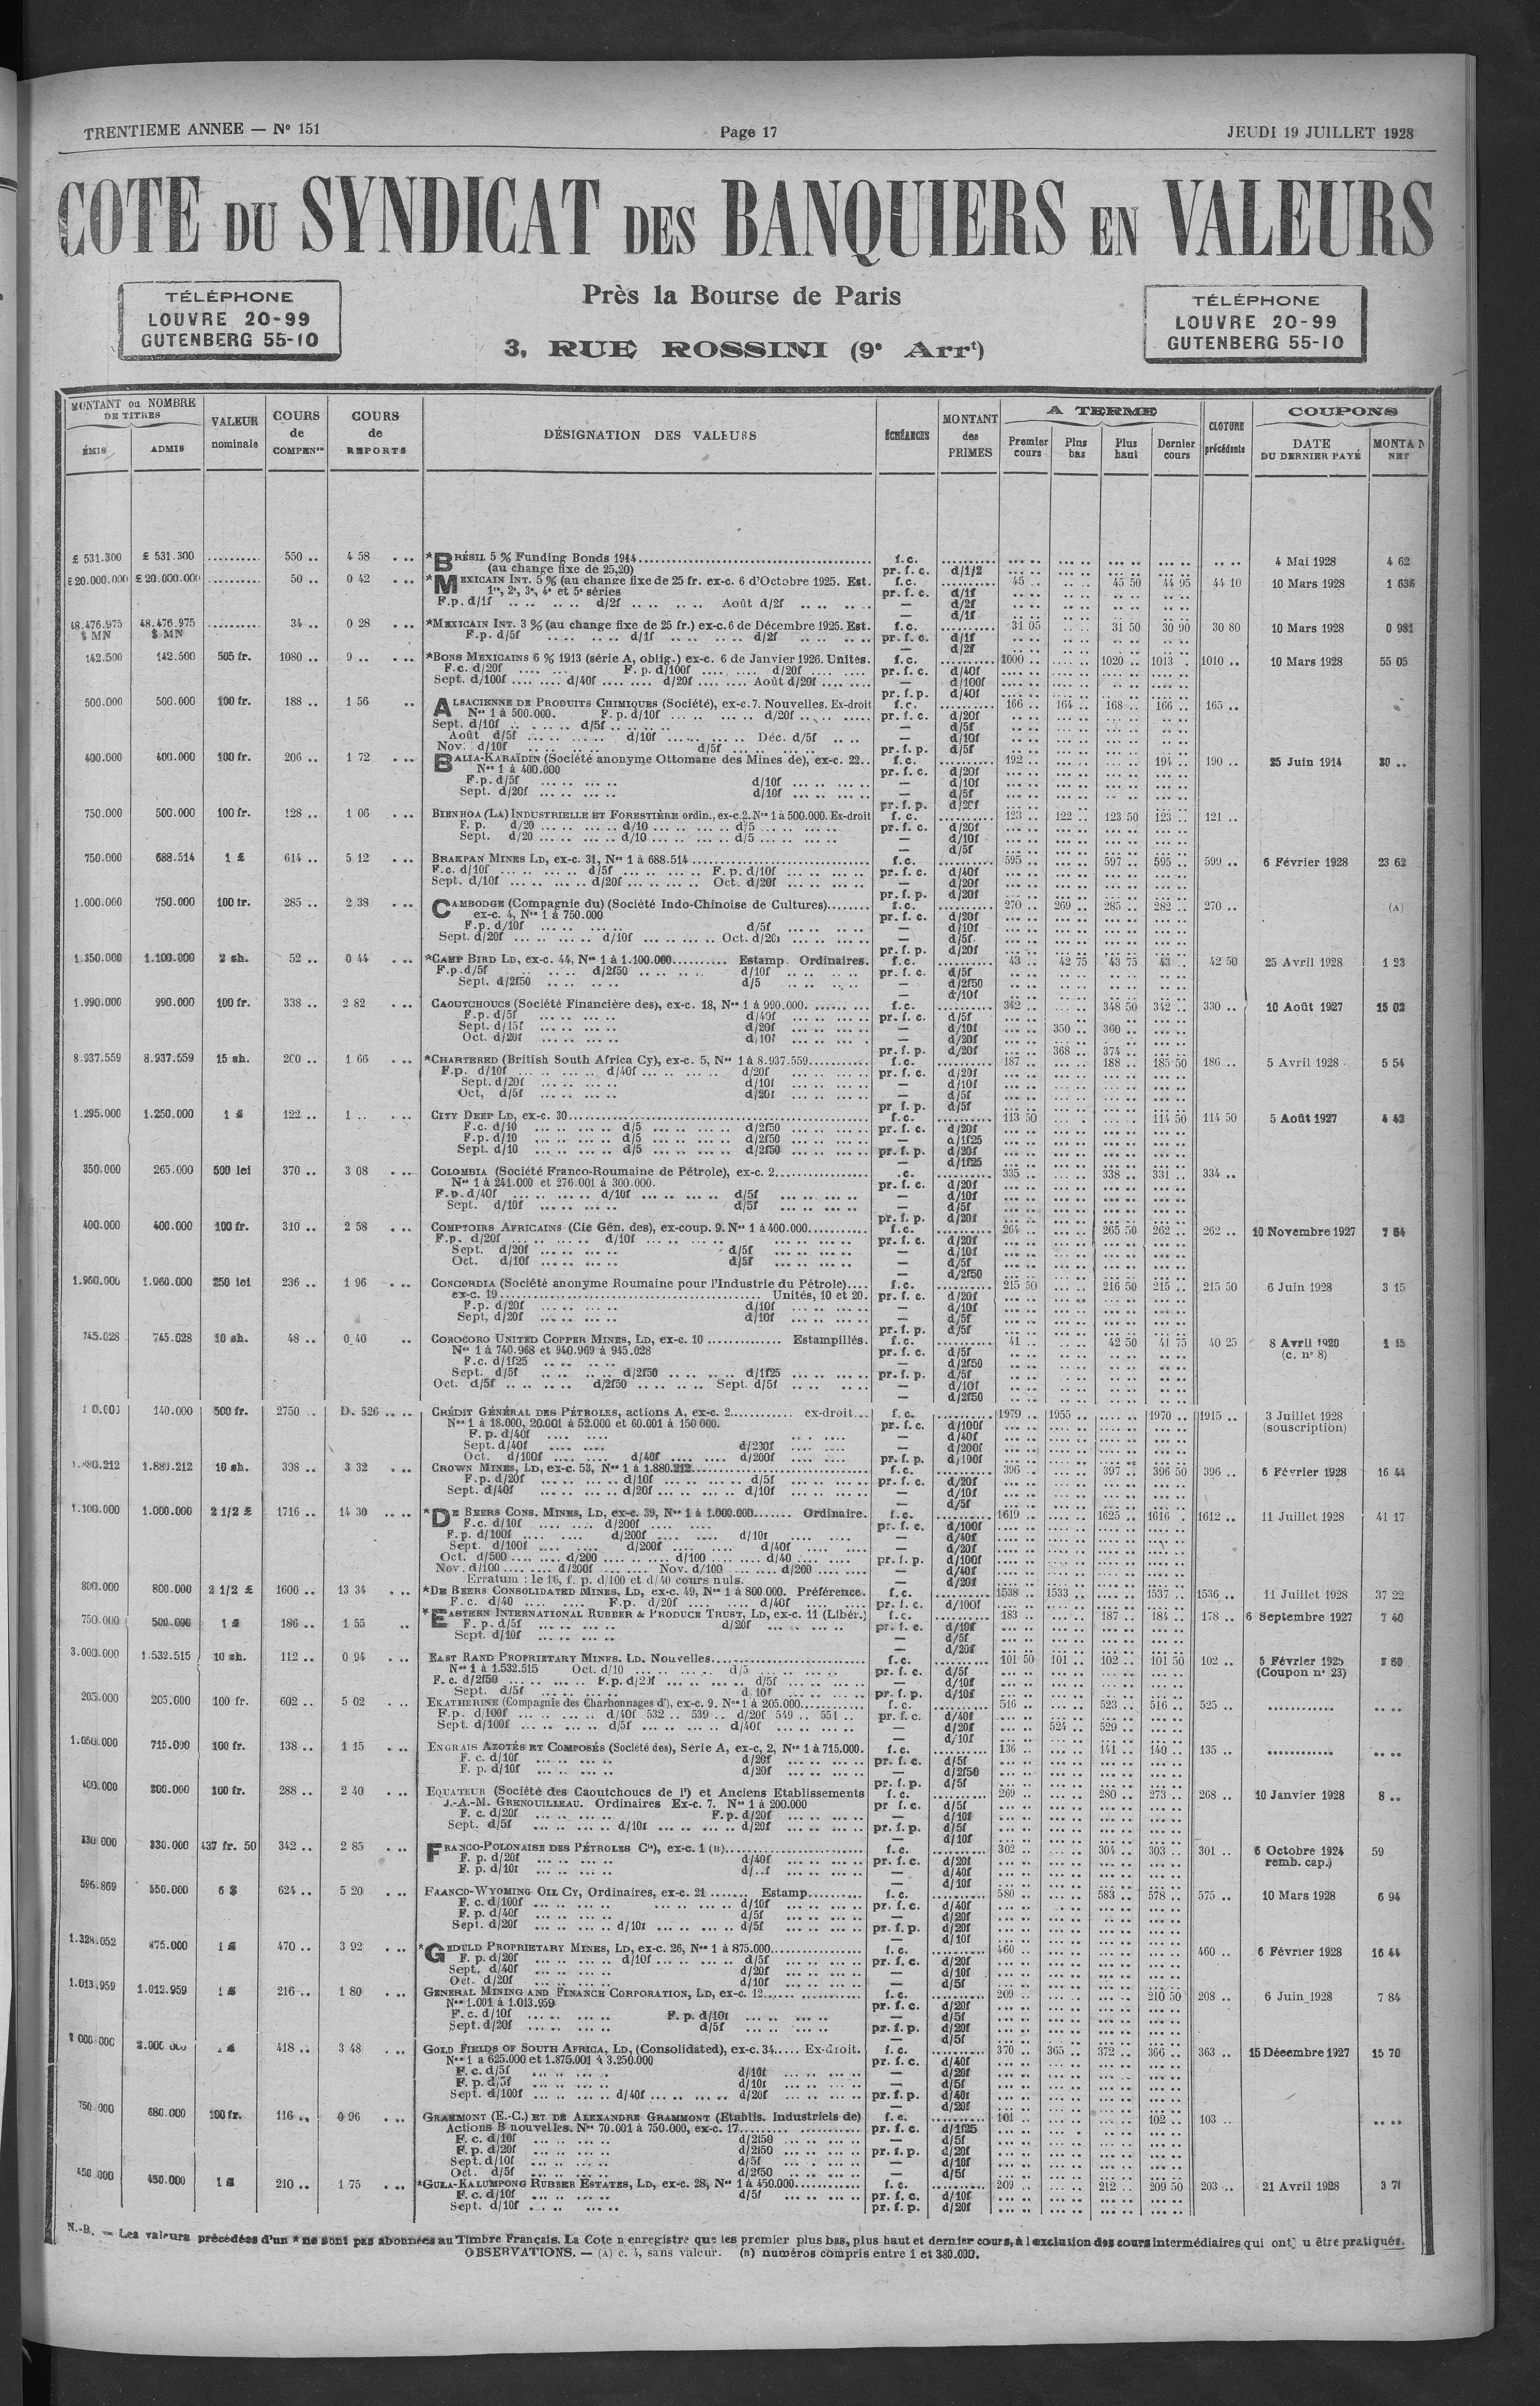 TRENTIEME ANNEE — N° 151 Page 17 JEUDI 19 JUILLET 1928
COTE DU SYNDICAT DES BANQUIERS EN VALEURS
TÉLÉPHONE
LOUVRE 20-99
GUTENBERG 55-10
Près la Bourse de Paris
3, RUE ROSSINI (9e Arrt)
TÉLÉPHONE
LOUVRE 20-99
GUTENBERG 55-10
MONTANT ou NOMBRE DE TITRES
ÉMIS ADMIS
VALEUR nominale
COURS de COMPENon
COURS de REPORTS
DÉSIGNATION DES VALEURS
ÉCHÉANCES
MONTANT des PRIMES
A TERME
Premier cours Plus bas Plus haut Dernier cours
CLOTURE précédente
COUPONS
DATE DU DERNIER PAYÉ
NET
£ 531.300 £ 531.300 .......... 550 .. 4 58 *BRÉSIL 5 % Funding Bonds 1914 f.c. 4 Mai 1928 4 62
(au change fixe de 25,20) pr. f. c. d/1/2
£ 20.000.000 £ 20.000.000 .......... 50 .. 0 42 *MEXICAIN INT. 5 % (au change fixe de 25 fr. ex-c. 6 d'Octobre 1925. Est. f.c. 45 .. 45 50 44 95 44 10 10 Mars 1928
1re, 2e, 3e, 4e et 5e séries pr. f. c. d/1f
F.p. d/1f .. .. d/2f .. .. Août d/2f .. .. — d/2f
— d/1f
48.476.975 $ MN 48.476.975 $ MN .......... 34 .. 0 28 *MEXICAIN INT. 3 % (au change fixe de 25 fr.) ex-c. 6 de Décembre 1925. Est. f.c. 31 05 31 50 30 90 30 80 10 Mars 1928 0 981
F.p. d/5f .. .. d/1f .. .. d/2f .. .. pr. f. c. d/1f
— d/2f
142.500 142.500 505 fr. 1080 .. 9 .. *BONS MEXICAINS 6 % 1913 (série A, oblig.) ex-c. 6 de Janvier 1926. Unités. f.c. 1000 .. 1020 .. 1013 .. 1010 .. 10 Mars 1928 55 05
F.c. d/20f .... F. p. d/100f .... d/20f .... pr. f. c. d/40f
Sept. d/100f .... d/40f .... d/20f .... Août d/20f .... — d/100f
pr. f. p. d/40f
500.000 500.000 100 fr. 188 .. 1 56 ALSACIENNE DE PRODUITS CHIMIQUES (Société), ex-c. 7. Nouvelles. Ex-droit f.c. 166 .. 164 .. 168 .. 166 .. 165 ..
Nos 1 à 500.000. F. p. d/10f .... d/20f .... pr. f. c. d/20f
Sept. d/10f .... d/5f .... — d/5f
Août d/5f .... d/10f .... Déc. d/5f .... — d/10f
Nov. d/10f .... d/5f .... pr. f. p. d/5f
400.000 400.000 100 fr. 206 .. 1 72 BALIA-KARAÏDIN (Société anonyme Ottomane des Mines de), ex-c. 22.. f.c. 192 .. 194 .. 190 .. 25 Juin 1914
Nos 1 à 400.000 pr. f. c. d/20f
F.p. d/5f .... d/10f .... — d/10f
Sept. d/20f .... d/10f .... — d/5f
pr. f. p. d/20f
750.000 500.000 100 fr. 128 .. 1 06 BIENHOA (LA) INDUSTRIELLE ET FORESTIÈRE ordin., ex-c. 2. Nos 1 à 500.000. Ex-droit f.c. 123 .. 122 .. 123 50 123 .. 121 ..
F. p. d/20 .... d/10 .... d/5 .... pr. f. c. d/20f
Sept. d/20 .... d/10 .... d/5 .... — d/10f
— d/5f
750.000 688.514 1 £ 614 .. 5 12 BRAKPAN MINES LD, ex-c. 31, Nos 1 à 688.514 f.c. 595 .. 597 .. 595 .. 599 .. 6 Février 1928 23 62
F.c. d/10f .... d/5f .... F. p. d/10f .... pr. f. c. d/40f
Sept. d/10f .... d/20f .... Oct. d/20f .... — d/20f
pr. f. p. d/20f
1.000.000 750.000 100 fr. 285 .. 2 38 CAMBODGE (Compagnie du) (Société Indo-Chinoise de Cultures) f.c. 270 .. 269 .. 285 .. 282 .. 270 .. (A)
ex-c. 4, Nos 1 à 750.000 pr. f. c. d/20f
F.p. d/10f .... d/5f .... — d/10f
Sept. d/20f .... d/10f .... Oct. d/20f .... — d/5f
pr. f. p. d/20f
1.350.000 1.100.000 2 sh. 52 .. 0 44 *CAMP BIRD LD, ex-c. 44, Nos 1 à 1.100.000 Estamp. Ordinaires. f.c. 43 .. 42 75 43 75 43 .. 42 50 25 Avril 1928 1 23
F.p. d/5f .... d/2f50 .... d/10f .... pr. f. c. d/5f
Sept. d/2f50 .... d/5 .... — d/2f50
— d/10f
1.990.000 990.000 100 fr. 338 .. 2 82 CAOUTCHOUCS (Société Financière des), ex-c. 18, Nos 1 à 990.000. f.c. 342 .. 348 50 342 .. 330 .. 10 Août 1927 15 02
F.p. d/5f .... d/40f .... pr. f. c. d/5f
Sept. d/15f .... d/20f .... — d/10f 350 .. 360 ..
Oct. d/20f .... d/10f .... — d/20f
pr. f. p. d/20f 368 .. 374 ..
8.937.559 8.937.559 15 sh. 200 .. 1 66 *CHARTERED (British South Africa Cy), ex-c. 5, Nos 1 à 8.937.559 f.c. 187 .. 188 .. 185 50 186 .. 5 Avril 1928 5 54
F.p. d/10f .... d/40f .... d/20f .... pr. f. c. d/20f
Sept. d/20f .... d/10f .... — d/10f
Oct. d/5f .... d/20f .... — d/5f
pr. f. p. d/5f
1.295.000 1.250.000 1 £ 122 .. 1 .. CITY DEEP LD, ex-c. 30 f.c. 113 50 114 50 114 50 5 Août 1927
F.c. d/10 .... d/5 .... d/2f50 .... pr. f. c. d/20f
F.p. d/10 .... d/5 .... d/2f50 .... — d/1f25
Sept. d/10 .... d/5 .... d/2f50 .... pr. f. p. d/20f
— d/1f25
350.000 265.000 500 lei 370 .. 3 08 COLOMBIA (Société Franco-Roumaine de Pétrole), ex-c. 2 .c. 335 .. 338 .. 331 .. 334 ..
Nos 1 à 241.000 et 276.001 à 300.000. pr. f. c. d/20f
F.p. d/40f .... d/10f .... d/5f .... — d/10f
Sept. d/10f .... d/5f .... — d/5f
pr. f. p. d/20f
400.000 400.000 100 fr. 310 .. 2 58 COMPTOIRS AFRICAINS (Cie Gén. des), ex-coup. 9. Nos 1 à 400.000 f.c. 264 .. 265 50 262 .. 262 .. 10 Novembre 1927
F.p. d/20f .... d/10f .... pr. f. c. d/20f
Sept. d/20f .... d/5f .... — d/10f
Oct. d/10f .... d/5f .... — d/5f
— d/2f50
1.960.000 1.960.000 250 lei 236 .. 1 96 CONCORDIA (Société anonyme Roumaine pour l'Industrie du Pétrole) f.c. 215 50 216 50 215 .. 215 50 6 Juin 1928 3 15
ex-c. 19 .... Unités, 10 et 20. pr. f. c. d/20f
F.p. d/20f .... d/10f .... — d/10f
Sept. d/20f .... d/10f .... — d/5f
pr. f. p. d/5f
745.028 745.028 10 sh. 48 .. 0 40 COROCORO UNITED COPPER MINES, LD, ex-c. 10 Estampillés. f.c. 41 .. 42 50 41 75 40 25 8 Avril 1920
Nos 1 à 740.968 et 940.969 à 945.028 pr. f. c. d/5f (c. n° 8)
F.c. d/1f25 .... — d/2f50
Sept. d/5f .... d/2f50 .... d/1f25 .... pr. f. p. d/5f
Oct. d/5f .... d/2f50 .... Sept. d/5f .... — d/10f
— d/2f50
140.000 500 fr. 2750 .. D. 526 .. CRÉDIT GÉNÉRAL DES PÉTROLES, actions A, ex-c. 2 ex-droit f.c. 1979 .. 1955 .. 1970 .. 1915 .. 3 Juillet 1928
Nos 1 à 18.000, 20.001 à 52.000 et 60.001 à 150.000. pr. f. c. d/100f (souscription)
F. p. d/40f .... — d/40f
Sept. d/40f .... d/200f .... — d/200f
Oct. d/100f .... d/40f .... d/200f .... pr. f. p. d/100f
1.880.212 1.880.212 10 sh. 398 .. 3 32 CROWN MINES, LD, ex-c. 53, Nos 1 à 1.880.212 f.c. 396 .. 397 .. 396 50 396 .. 6 Février 1928 16 44
F.p. d/20f .... d/10f .... d/5f .... pr. f. c. d/20f
Sept. d/40f .... d/20f .... d/10f .... — d/10f
— d/5f
1.100.000 1.000.000 2 1/2 £ 1716 .. 14 30 *DE BEERS CONS. MINES, LD, ex-c. 39, Nos 1 à 1.000.000 Ordinaire. f.c. 1619 .. 1625 .. 1616 .. 1612 .. 11 Juillet 1928 41 17
F.c. d/10f .... d/200f .... pr. f. c. d/100f
F.p. d/100f .... d/200f .... d/10f .... — d/40f
Sept. d/100f .... d/200f .... d/40f .... — d/20f
Oct. d/500 .... d/200 .... d/100 .... d/40 .... pr. f. p. d/100f
Nov. d/100 .... d/200f .... Nov. d/100 .... d/200 .... — d/40f
Erratum : le 16, f. p. d/100 et d/40 cours nuls. — d/20f
800.000 800.000 2 1/2 £ 1600 .. 13 34 *DE BEERS CONSOLIDATED MINES, LD, ex-c. 49, Nos 1 à 800.000. Préférence. f.c. 1538 .. 1533 .. 1537 .. 1536 .. 11 Juillet 1928 37 22
F. c. d/40 .... F.p. d/20f .... d/40f .... pr. f. c. d/100f
750.000 500.000 1 £ 186 .. 1 55 *EASTERN INTERNATIONAL RUBBER & PRODUCE TRUST, LD, ex-c. 11 (Libér.) f.c. 183 .. 187 .. 184 .. 178 .. 6 Septembre 1927 7 40
F. p. d/5f .... d/20f .... pr. f. c. d/10f
Sept. d/10f .... — d/5f
— d/20f
3.000.000 1.532.515 10 sh. 112 .. 0 94 EAST RAND PROPRIETARY MINES. LD. Nouvelles f.c. 101 50 101 .. 102 .. 101 50 102 .. 5 Février 1925
Nos 1 à 1.532.515 Oct. d/10 .... d/5 .... pr. f. c. d/5f (Coupon n° 23)
F. c. d/2f50 .... F.p. d/2f .... d/5f .... — d/10f
Sept. d/5f .... d 10f .... pr. f. p. d/10f
205.000 205.000 100 fr. 602 .. 5 02 EKATHERINE (Compagnie des Charbonnages d'), ex-c. 9. Nos 1 à 205.000 f.c. 516 .. 523 .. 516 .. 525 ..
F.p. d/100f .... d/40f 532 .. 539 .. d/20f 549 .. 551 .. pr. f. c. d/40f
Sept. d/100f .... d/5f .... d/40f .... — d/20f 524 .. 529 ..
— d/10f
1.050.000 715.000 100 fr. 138 .. 1 15 ENGRAIS AZOTÉS ET COMPOSÉS (Société des), Série A, ex-c, 2, Nos 1 à 715.000. f.c. 136 .. 141 .. 140 .. 135 ..
F. c. d/10f .... d/20f .... pr. f. c. d/5f
F. p. d/10f .... d/20f .... — d/2f50
pr. f. p. d/5f
400.000 200.000 100 fr. 288 .. 2 40 EQUATEUR (Société des Caoutchoucs de l') et Anciens Etablissements f.c. 269 .. 280 .. 273 .. 268 .. 10 Janvier 1928 8 ..
J.-A.-M. GRENOUILLEAU. Ordinaires Ex-c. 7. Nos 1 à 200.000 pr f. c. d/5f
F. c. d/20f .... F.p. d/20f .... — d/10f
Sept. d/5f .... d/10f .... d/20f .... pr. f. p. d/5f
— d/10f
330.000 330.000 437 fr. 50 342 .. 2 85 FRANCO-POLONAISE DES PÉTROLES Cie), ex-c. 1 (B) f.c. 302 .. 304 .. 303 .. 301 .. 6 Octobre 1924 59
F. p. d/20f .... d/40f .... pr. f. c. d/20f remb. cap.)
F. p. d/10f .... — d/40f
— d/10f
596.869 550.000 6 $ 624 .. 5 20 FRANCO-WYOMING OIL CY, Ordinaires, ex-c. 21 Estamp. f.c. 580 .. 583 .. 578 .. 575 .. 10 Mars 1928 6 94
F. c. d/100f .... d/10f .... pr. f. c. d/40f
F. p. d/40f .... d/5f .... — d/20f
Sept. d/20f .... d/10f .... d/5f .... pr. f. p. d/20f
— d/10f
1.328.052 875.000 1 £ 470 .. 3 92 *GEDULD PROPRIETARY MINES, LD, ex-c. 26, Nos 1 à 875.000 f.c. 460 .. 460 .. 6 Février 1928 16 44
F. p. d/20f .... d/10f .... d/5f .... pr. f. c. d/20f
Sept. d/40f .... d/20f .... — d/10f
Oct. d/20f .... d/10f .... — d/5f
1.013.959 1.012.959 1 £ 216 .. 1 80 GENERAL MINING AND FINANCE CORPORATION, LD, ex-c. 12 f.c. 209 .. 210 50 208 .. 6 Juin 1928 7 84
Nos 1.001 à 1.013.959 pr. f. c. d/20f
F. c. d/10f .... F. p. d/10f .... — d/5f
Sept. d/20f .... d/5f .... pr. f. p. d/20f
— d/5f
418 .. 3 48 GOLD FIELDS OF SOUTH AFRICA, LD, (Consolidated), ex-c. 34 Ex-droit. f.c. 370 .. 365 .. 372 .. 366 .. 363 .. 15 Décembre 1927 15 70
Nos 1 à 625.000 et 1.875.001 à 3.250.000 pr. f. c. d/40f
F. c. d/5f .... d/10f .... — d/20f
F. p. d/5f .... d/10f .... — d/5f
Sept. d/100f .... d/40f .... d/20f .... pr. f. p. d/40f
— d/20f
750.000 680.000 100 fr. 116 .. 0 96 GRAMMONT (E.-C.) ET DE ALEXANDRE GRAMMONT (Etablis. Industriels de) f. c. 101 .. 102 .. 103 ..
Actions B nouvelles. Nos 70.001 à 750.000, ex-c. 17 pr. f. c. d/1f25
F. c. d/10f .... d/2f50 .... — d/5f
F. p. d/20f .... d/2f50 .... pr. f. p. d/20f
Sept. d/10f .... d/5f .... — d/10f
Oct. d/5f .... d/2f50 .... — d/5f
450.000 450.000 1 £ 210 .. 1 75 *GULA-KALUMPONG RUBBER ESTATES, LD, ex-c. 28, Nos 1 à 450.000 f.c. 209 .. 212 .. 209 50 203 .. 21 Avril 1928
F. c. d/10f .... d/5f .... pr. f. c. d/10f
Sept. d/10f .... pr. f. p. d/20f
N.-B. — Les valeurs précédées d'un * ne sont pas abonnées au Timbre Français. La Cote n enregistre que les premier plus bas, plus haut et dernier cours, à l exclusion des cours intermédiaires qui ont u être pratiqués.
OBSERVATIONS. — (A) c. 4, sans valeur. (B) numéros compris entre 1 et 380.000.